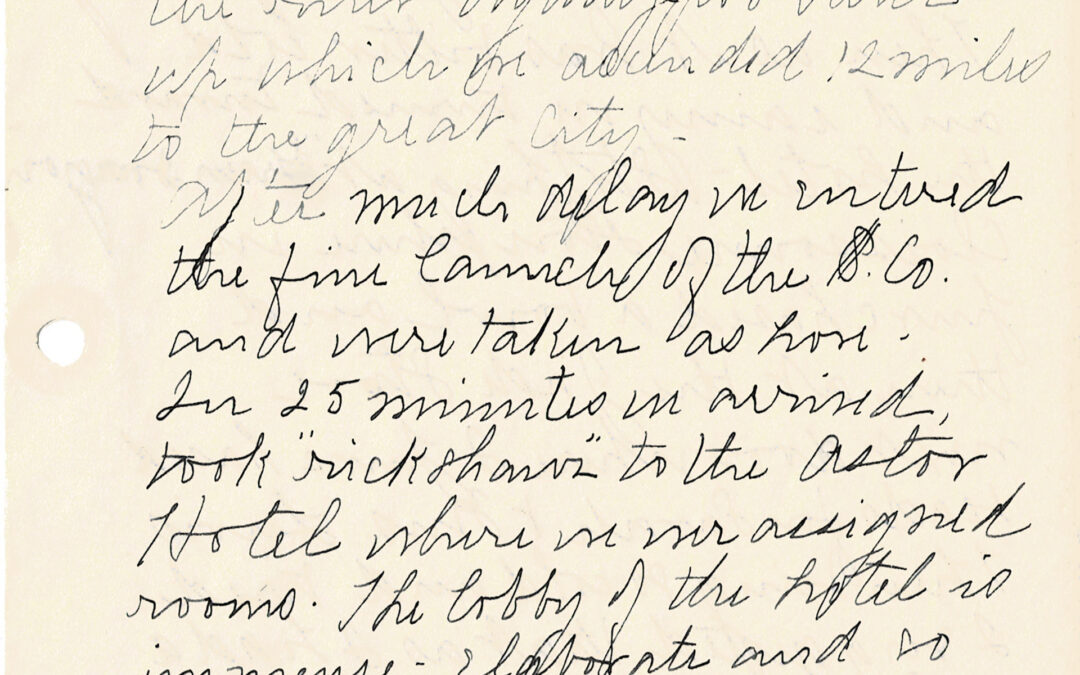 the
up which we ascended 12 miles
to the great city -
After much delay we entered
the fine launch of the S. Co.
and were taken ashore.
In 25 minutes we arrived,
took "rickshaws" to the Astor
Hotel where we were assigned
rooms. The lobby of the hotel is
immense - elaborate and so